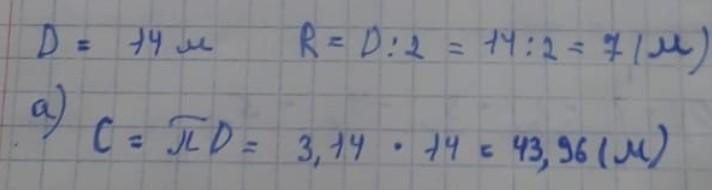 D = 14 м R = D : 2 = 14 : 2 = 7 (м)
а) C = πD = 3,14 · 14 = 43,96 (м)